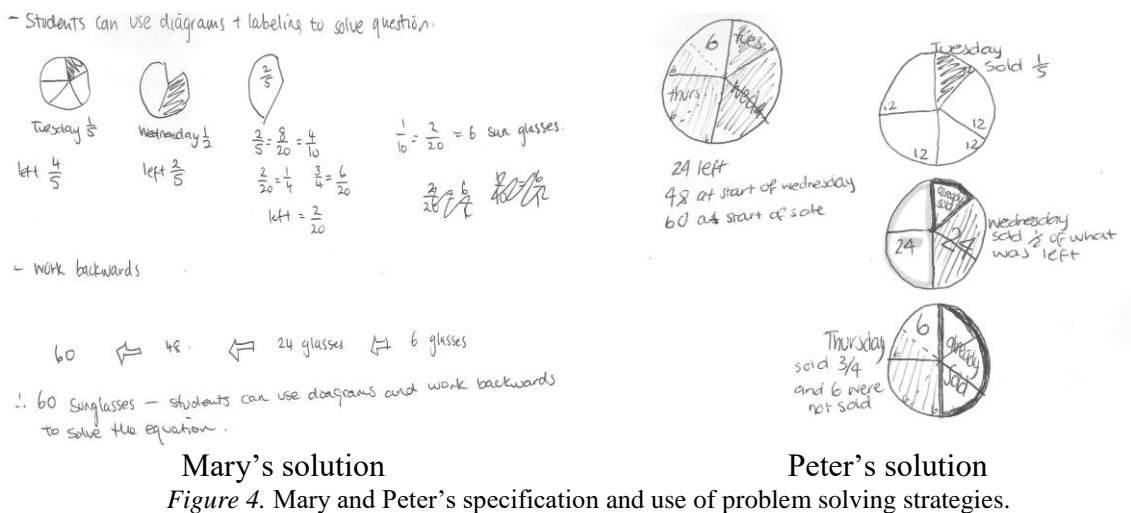 - Students can use diagrams + labeling to solve question.
2/5
Tuesday 1/5
Wednesday 1/2
left 4/5
left 2/5
2/5 = 8/20 = 4/10
2/20 = 1/4 3/4 = 6/20
left = 2/20
1/10 = 2/20 = 6 sun glasses.
- work backwards
60 ⇐ 48. ⇐ 24 glasses ⇐ 6 glasses
∴ 60 sunglasses - students can use diagrams and work backwards
to solve the equation.
6
tues
thurs
weds
24 left
48 at start of wednesday
60 at start of sale
Tuesday
sold 1/5
12
12
12
12
12
already
sold
24
24
Wednesday
sold 1/2 of what
was left
Thursday
sold 3/4
and 6 were
not sold
6
already
sold
Mary's solution
Peter's solution
Figure 4. Mary and Peter's specification and use of problem solving strategies.